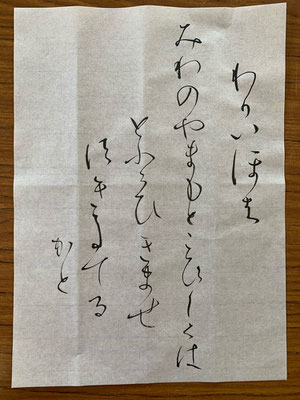 わかいほは
みわのやまもとこひしくは
とふらひきませ
すきたてる
かと